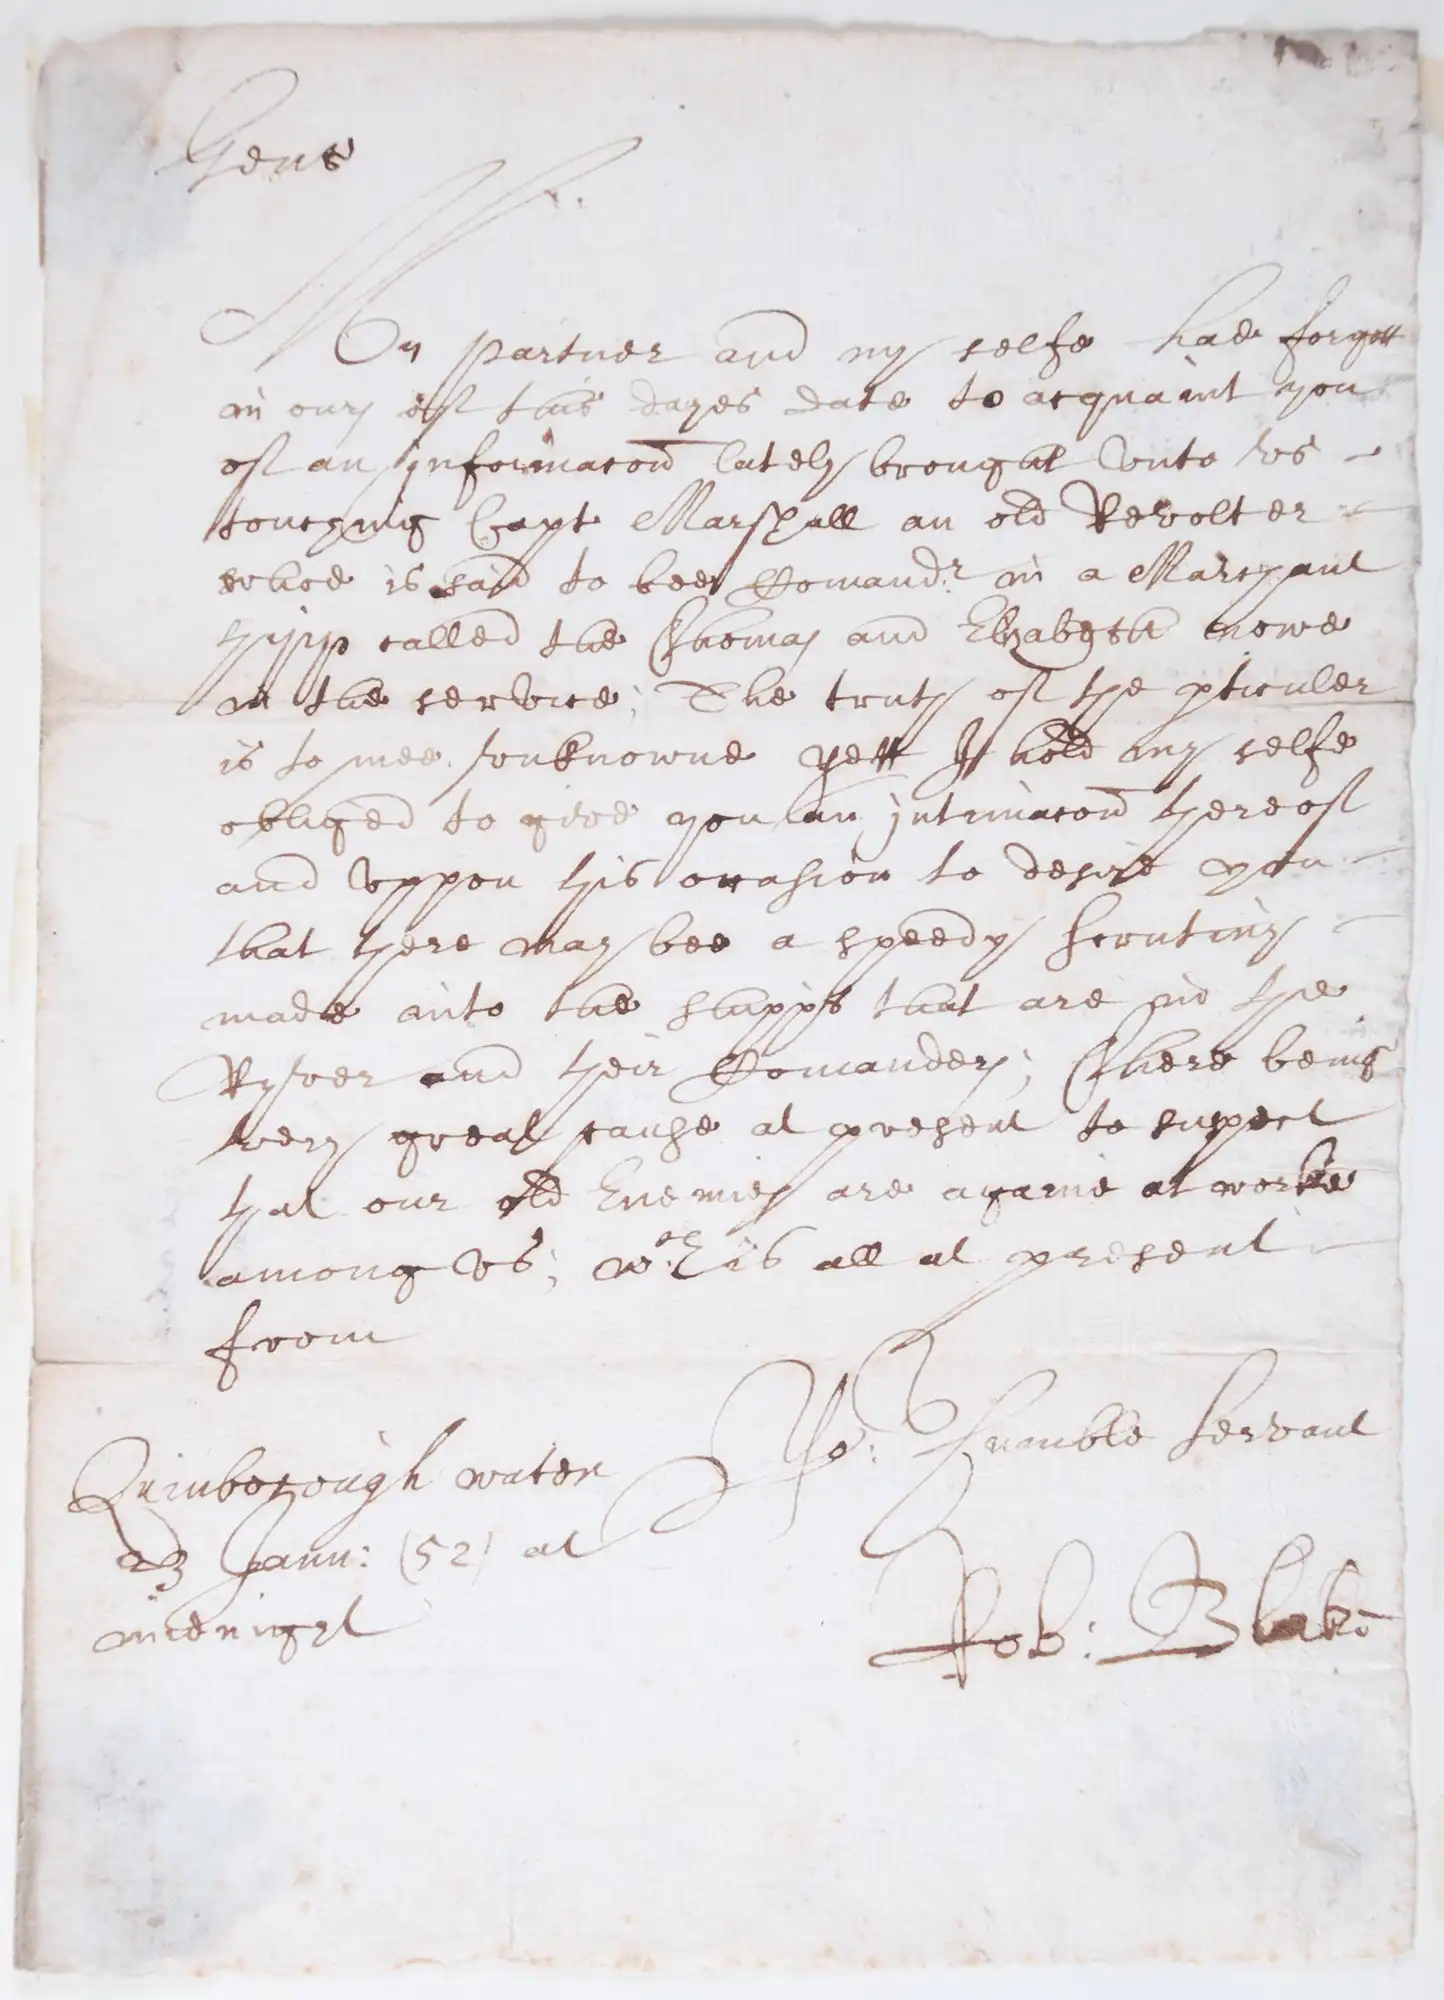 Gent
My partner and my selfe had forgott
in ours of this dayes date to acquaint you
of an informacon lately brought vnto vs
touching Capt Marshall an old Revolter
whoe is said to bee Comandr in a Marchant
shipp called the Thomas and Elizabeth nowe
in the service; The truth of the pticuler
is to mee vnknowne yett I hold my selfe
obliged to give you an intimacon thereof
and vppon this occasion to desire you
that there may bee a speedy scrutiny
made into the shipps that are in the
Ryver and their Comanders; There being
very great cause at present to suspect
that our old Enemies are againe at worke
among vs; wch is all at present
from
Yor: humble servant
Quinborough water
23 Janu: (52) at
midnight
Rob: Blake